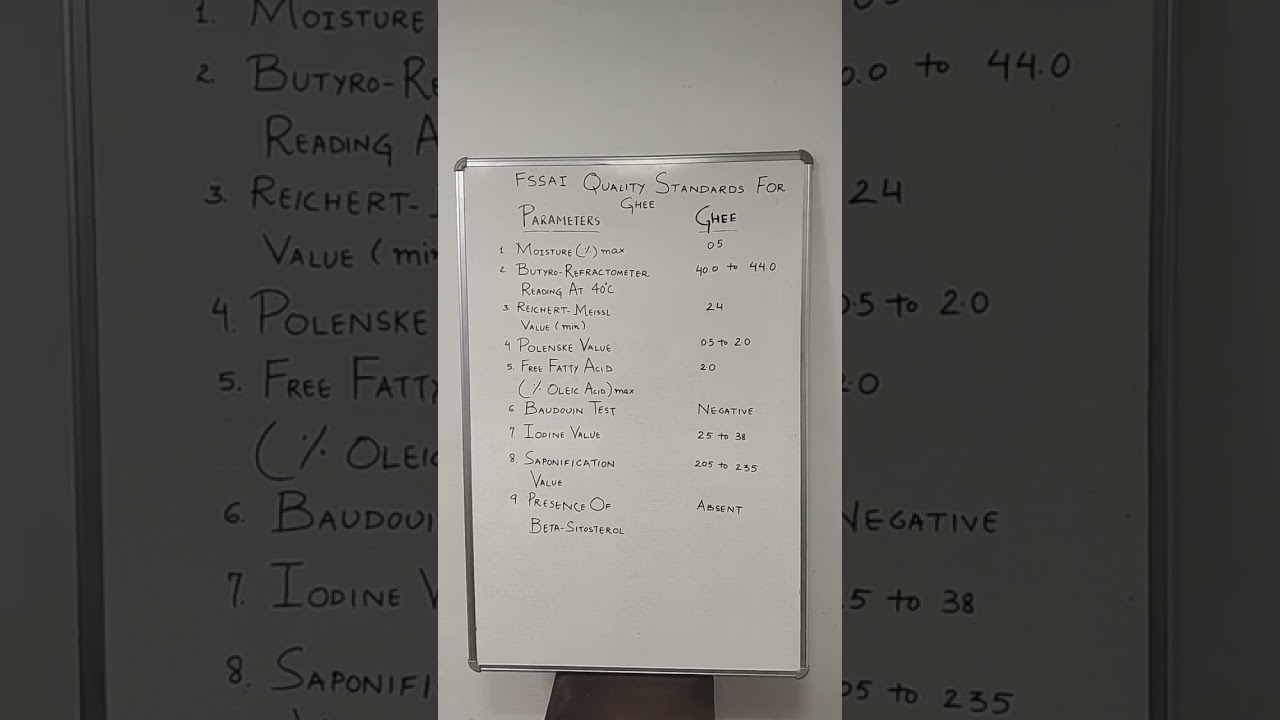 FSSAI QUALITY STANDARDS FOR
GHEE
PARAMETERS GHEE
1. MOISTURE (%) max 0.5
2. BUTYRO-REFRACTOMETER 40.0 to 44.0
READING AT 40°C
3. REICHERT-MEISSL 24
VALUE (min)
4. POLENSKE VALUE 0.5 to 2.0
5. FREE FATTY ACID 2.0
(% OLEIC ACID) max
6. BAUDOUIN TEST NEGATIVE
7. IODINE VALUE 25 to 38
8. SAPONIFICATION 205 to 235
VALUE
9. PRESENCE OF ABSENT
BETA-SITOSTEROL